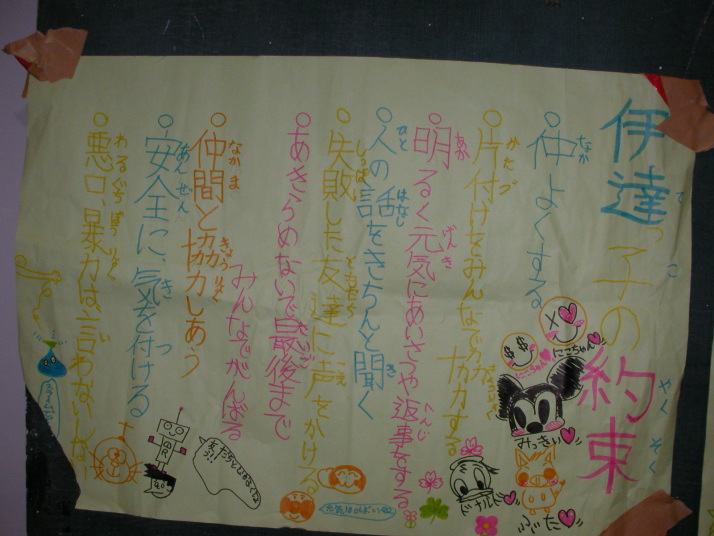 伊達っ子の約束
○仲よくする
○片付けをみんなで協力する
○明るく元気にあいさつや返事をする
○人の話をきちんと聞く
○失敗した友達に声をかける
○あきらめないで最後まで
みんなでがんばる
○仲間と協力しあう
○安全に、気を付ける
○悪口、暴力は、言わない
にこちゃん
みっきい
ドナルド
ぶた